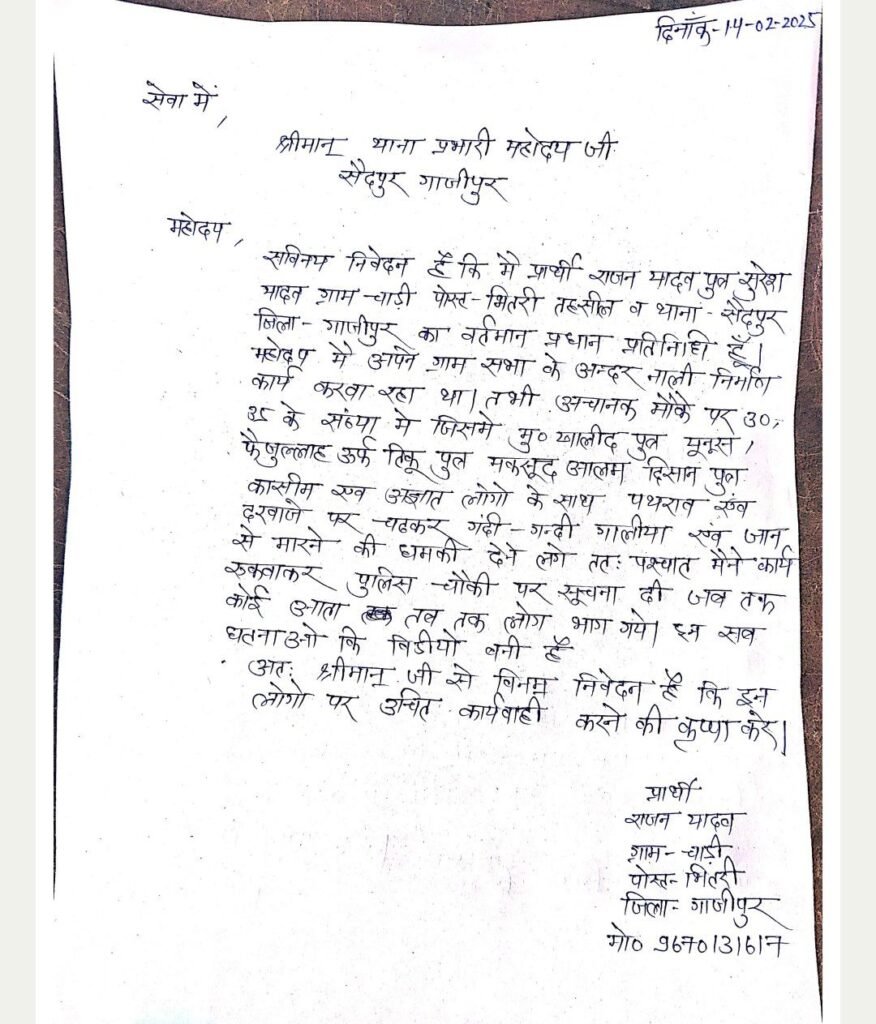 दिनाँक-14-02-2025
सेवा में,
श्रीमान् थाना प्रभारी महोदय जी
सैदपुर गाजीपुर
महोदय,
सविनय निवेदन है कि मै प्रार्थी राजन यादव पुत्र सुरेश
यादव ग्राम-चाड़ी पोस्ट-भितरी तहसील व थाना-सैदपुर
जिला-गाजीपुर का वर्तमान प्रधान प्रतिनिधि हूँ।
महोदय मै अपने ग्राम सभा के अन्दर नाली निर्माण
कार्य करवा रहा था। तभी अचानक मौके पर 30,
35 के संख्या मे जिसमे मु० खालीद पुत्र मूनूस,
फैजुल्लाह ऊर्फ टिकू पुत्र मकसूद आलम दिसान पुत्र
कासीम एंव अज्ञात लोगो के साथ पथराव एंव
दरवाजे पर चढकर गंदी-गन्दी गालीया एंव जान
से मारने की धमकी देने लगे ततः पश्चात मैने कार्य
रुकवाकर पुलिस चौकी पर सूचना दी जब तक
कोई आता तब तक लोग भाग गये। इन सब
घतनाओ कि विडीयो बनी है
अतः श्रीमान् जी से विनम्र निवेदन है कि इन
लोगो पर उचित कार्यवाही करने की कृप्पा करे।
प्रार्थी
राजन यादव
ग्राम-चाड़ी
पोस्ट-भितरी
जिला-गाजीपुर
मो० 9670131617